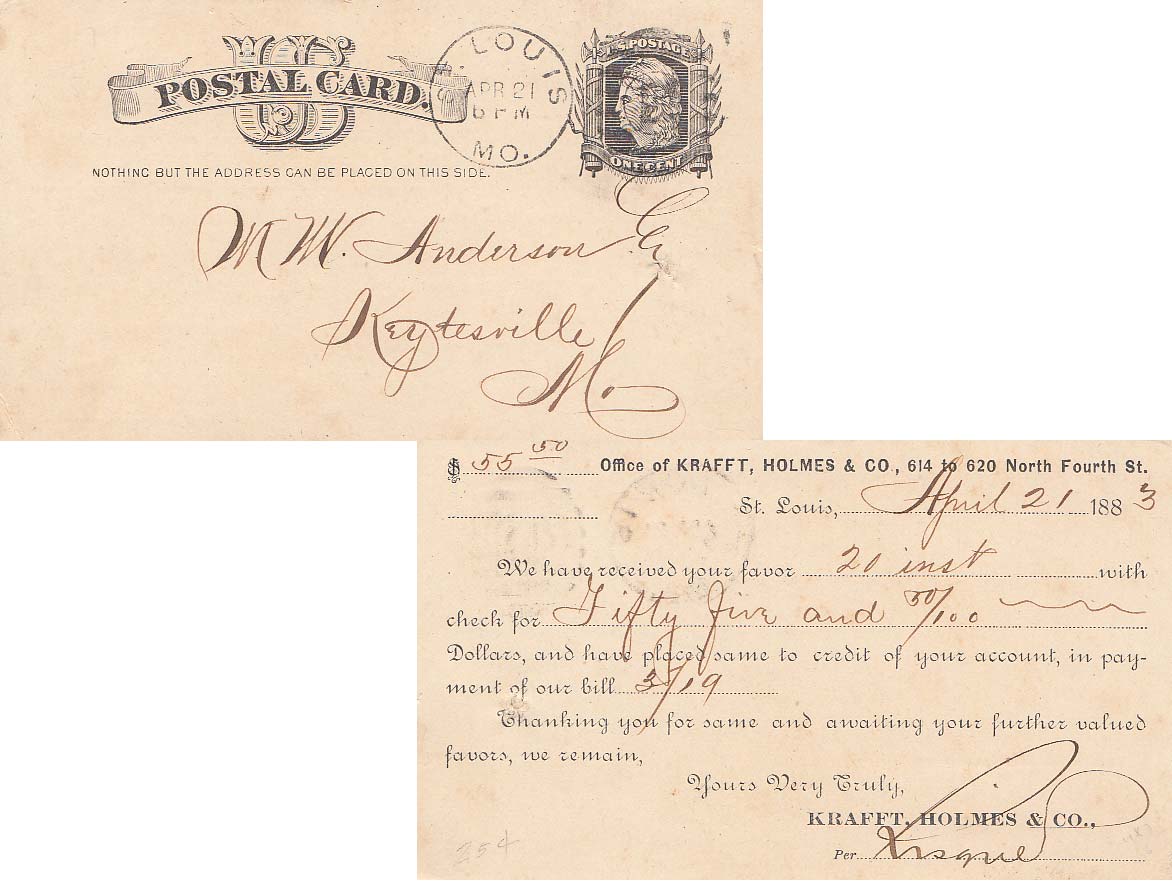 US
POSTAL CARD.
ST. LOUIS
APR 21
6 PM
MO.
U.S. POSTAGE
ONE CENT
NOTHING BUT THE ADDRESS CAN BE PLACED ON THIS SIDE.
W. Anderson
Keytesville
Mo
$ 55 50 Office of KRAFFT, HOLMES & CO., 614 to 620 North Fourth St.
St. Louis, April 21 1883
We have received your favor 20 inst with
check for Fifty five and 50/100
Dollars, and have placed same to credit of your account, in pay-
ment of our bill 3/19
Thanking you for same and awaiting your further valued
favors, we remain,
Yours Very Truly,
KRAFFT, HOLMES & CO.,
Per
254